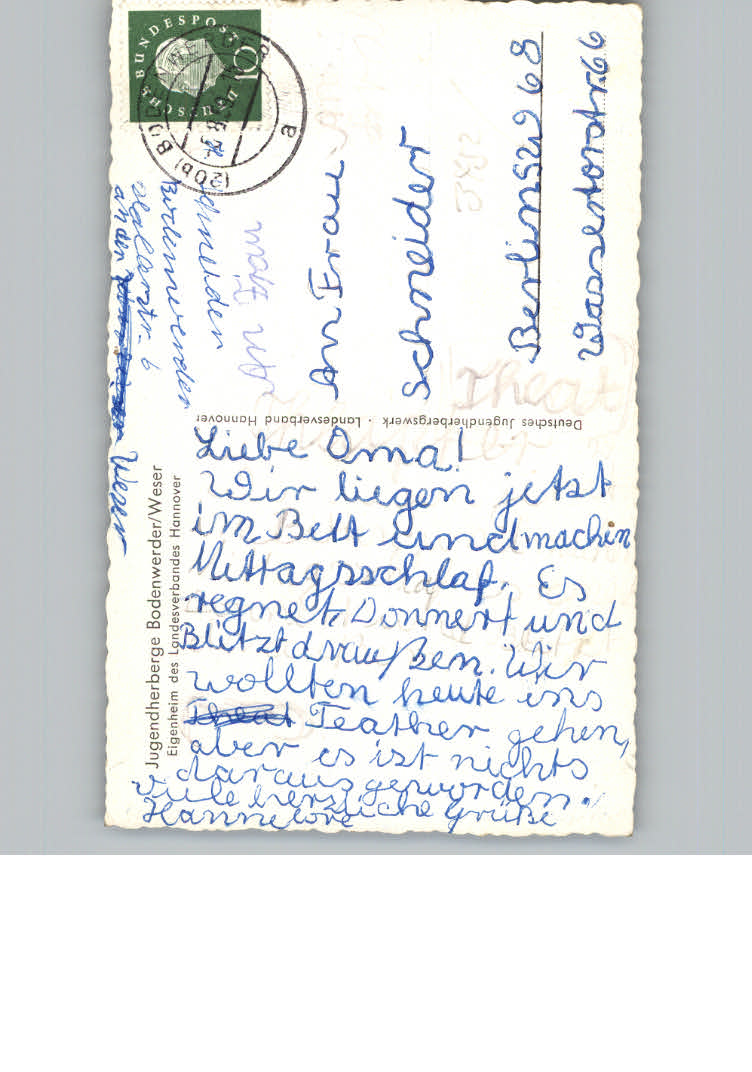 DEUTSCHE BUNDESPOST
10
(20b) BODENWERDER
a
Schneider
Bodenwerder
str. 6
an der Weser
An Frau
Schneider
Berlin SW 68
Wassertorstr. 66
Theat
Deutsches Jugendherbergswerk · Landesverband Hannover
Jugendherberge Bodenwerder/Weser
Eigenheim des Landesverbandes Hannover
Liebe Oma!
Wir liegen jetzt
im Bett und machen
Mittagsschlaf. Es
regnet, Donnert und
Blitzt draußen. Wir
wollten heute ins
Theat Teather gehen,
aber es ist nichts
daraus geworden.
Viele herzliche Grüße
Hannelore